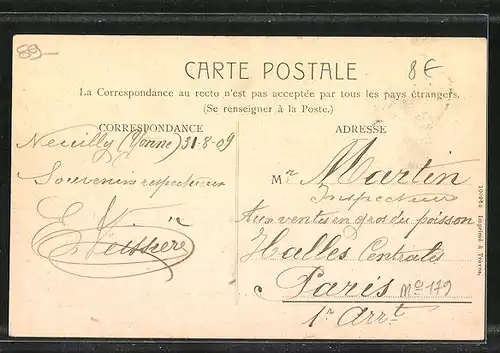 89-
8€
CARTE POSTALE
La Correspondance au recto n'est pas acceptée par tous les pays étrangers.
(Se renseigner à la Poste.)
CORRESPONDANCE
Neuilly (Yonne) 31-8-09
Souvenirs respectueux
E. Veissière
ADRESSE
Mr Martin
Inspecteur
Aux ventes en gros du poisson
Halles Centrales
Paris
Mo 179
1er Arrt
Imprimé à Troyes.